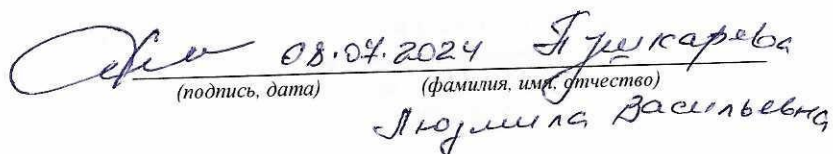 08.07.2024 Пушкарева
(подпись, дата) (фамилия, имя, отчество)
Людмила Васильевна